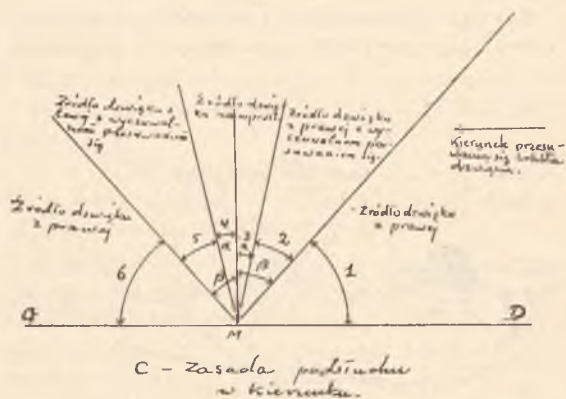 Źródło dźwięku z
lewej z wyczuwal-
nem przesuwaniem
się
Źródło dźwię-
ku naprost
Źródło dźwięku
z prawej z wy-
czuwalnem prze-
suwaniem się.
Kierunek przesu-
wania się
dźwięku.
Źródło dźwięku
z prawej
Źródło dźwięku
z prawej
6
5
4
α
3
α
2
1
β
β
G
M
D
C - Zasada podsłuchu
w kierunku.